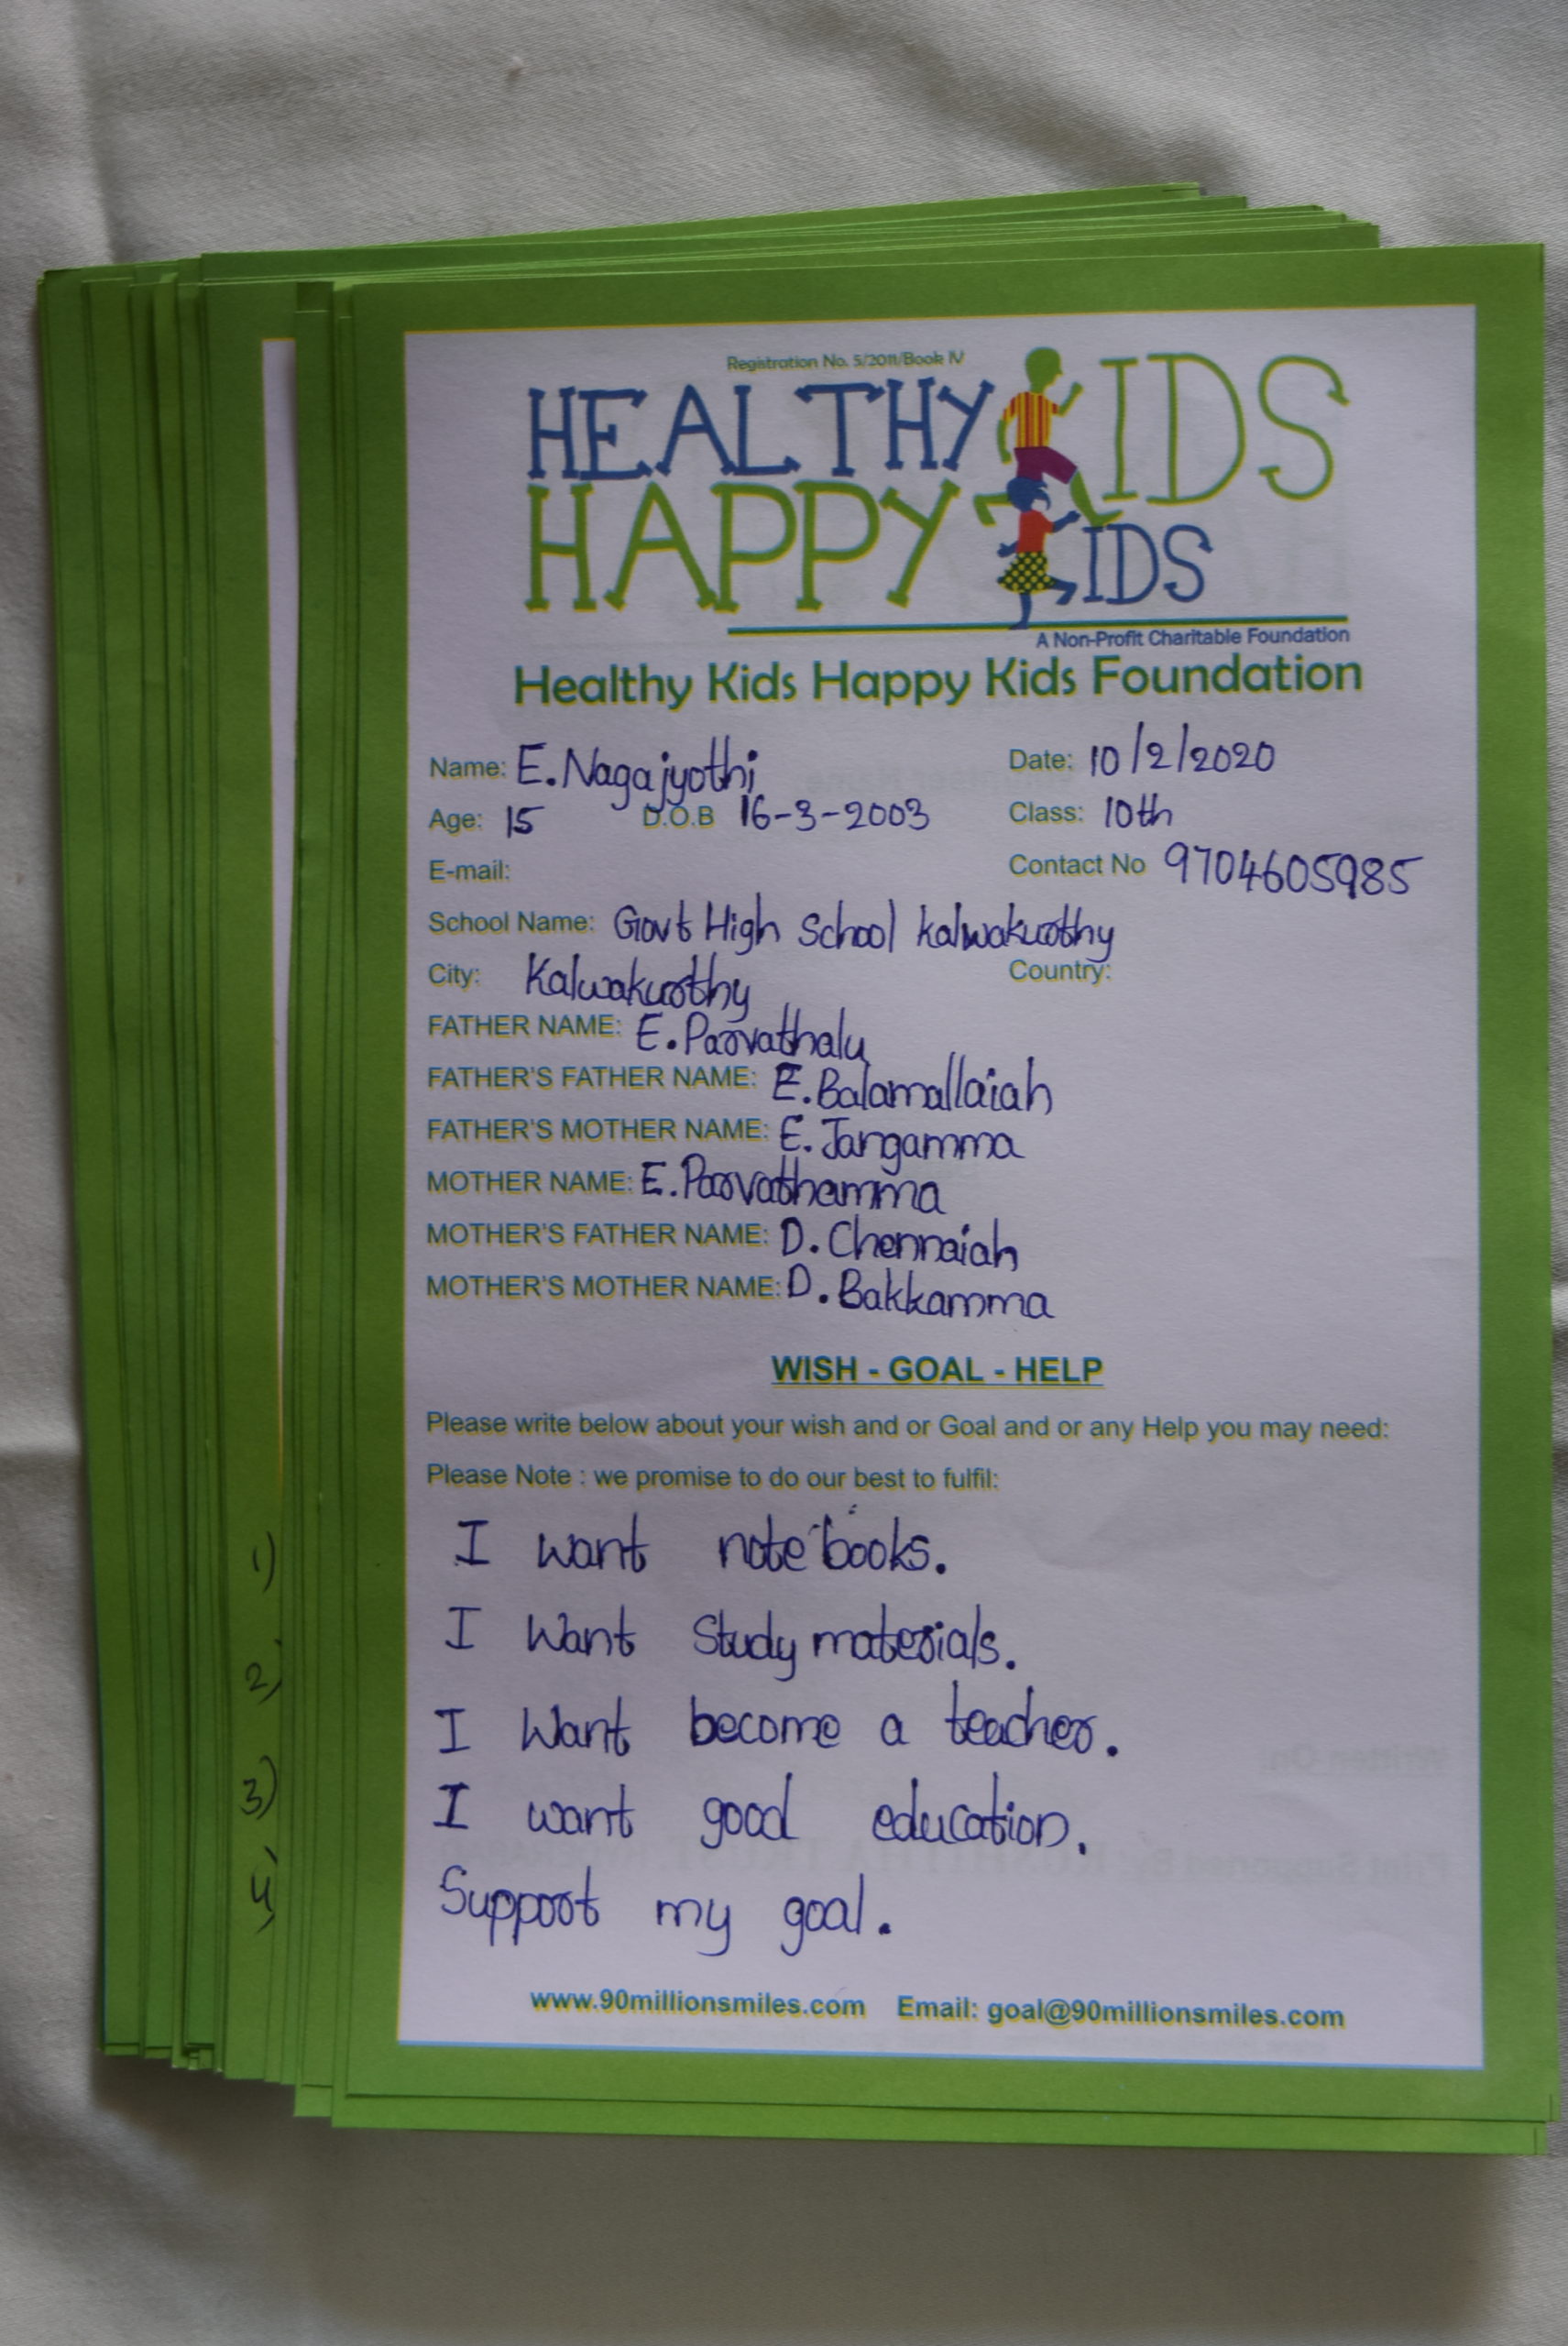 Registration No. 5/2011/Book IV
HEALTHY KIDS
HAPPY KIDS
A Non-Profit Charitable Foundation
Healthy Kids Happy Kids Foundation
Name: E. Nagajyothi Date: 10/2/2020
Age: 15 D.O.B 16-3-2003 Class: 10th
E-mail: Contact No 9704605985
School Name: Govt High School kalwakurthy
City: Kalwakurthy Country:
FATHER NAME: E. Parvathalu
FATHER'S FATHER NAME: E. Balamallaiah
FATHER'S MOTHER NAME: E. Jangamma
MOTHER NAME: E. Parvathamma
MOTHER'S FATHER NAME: D. Chennaiah
MOTHER'S MOTHER NAME: D. Bakkamma
WISH - GOAL - HELP
Please write below about your wish and or Goal and or any Help you may need:
Please Note : we promise to do our best to fulfil:
I want note books.
I Want Study materials.
I Want become a teacher.
I want good education.
Support my goal.
www.90millionsmiles.com Email: goal@90millionsmiles.com
1)
2)
3)
4)